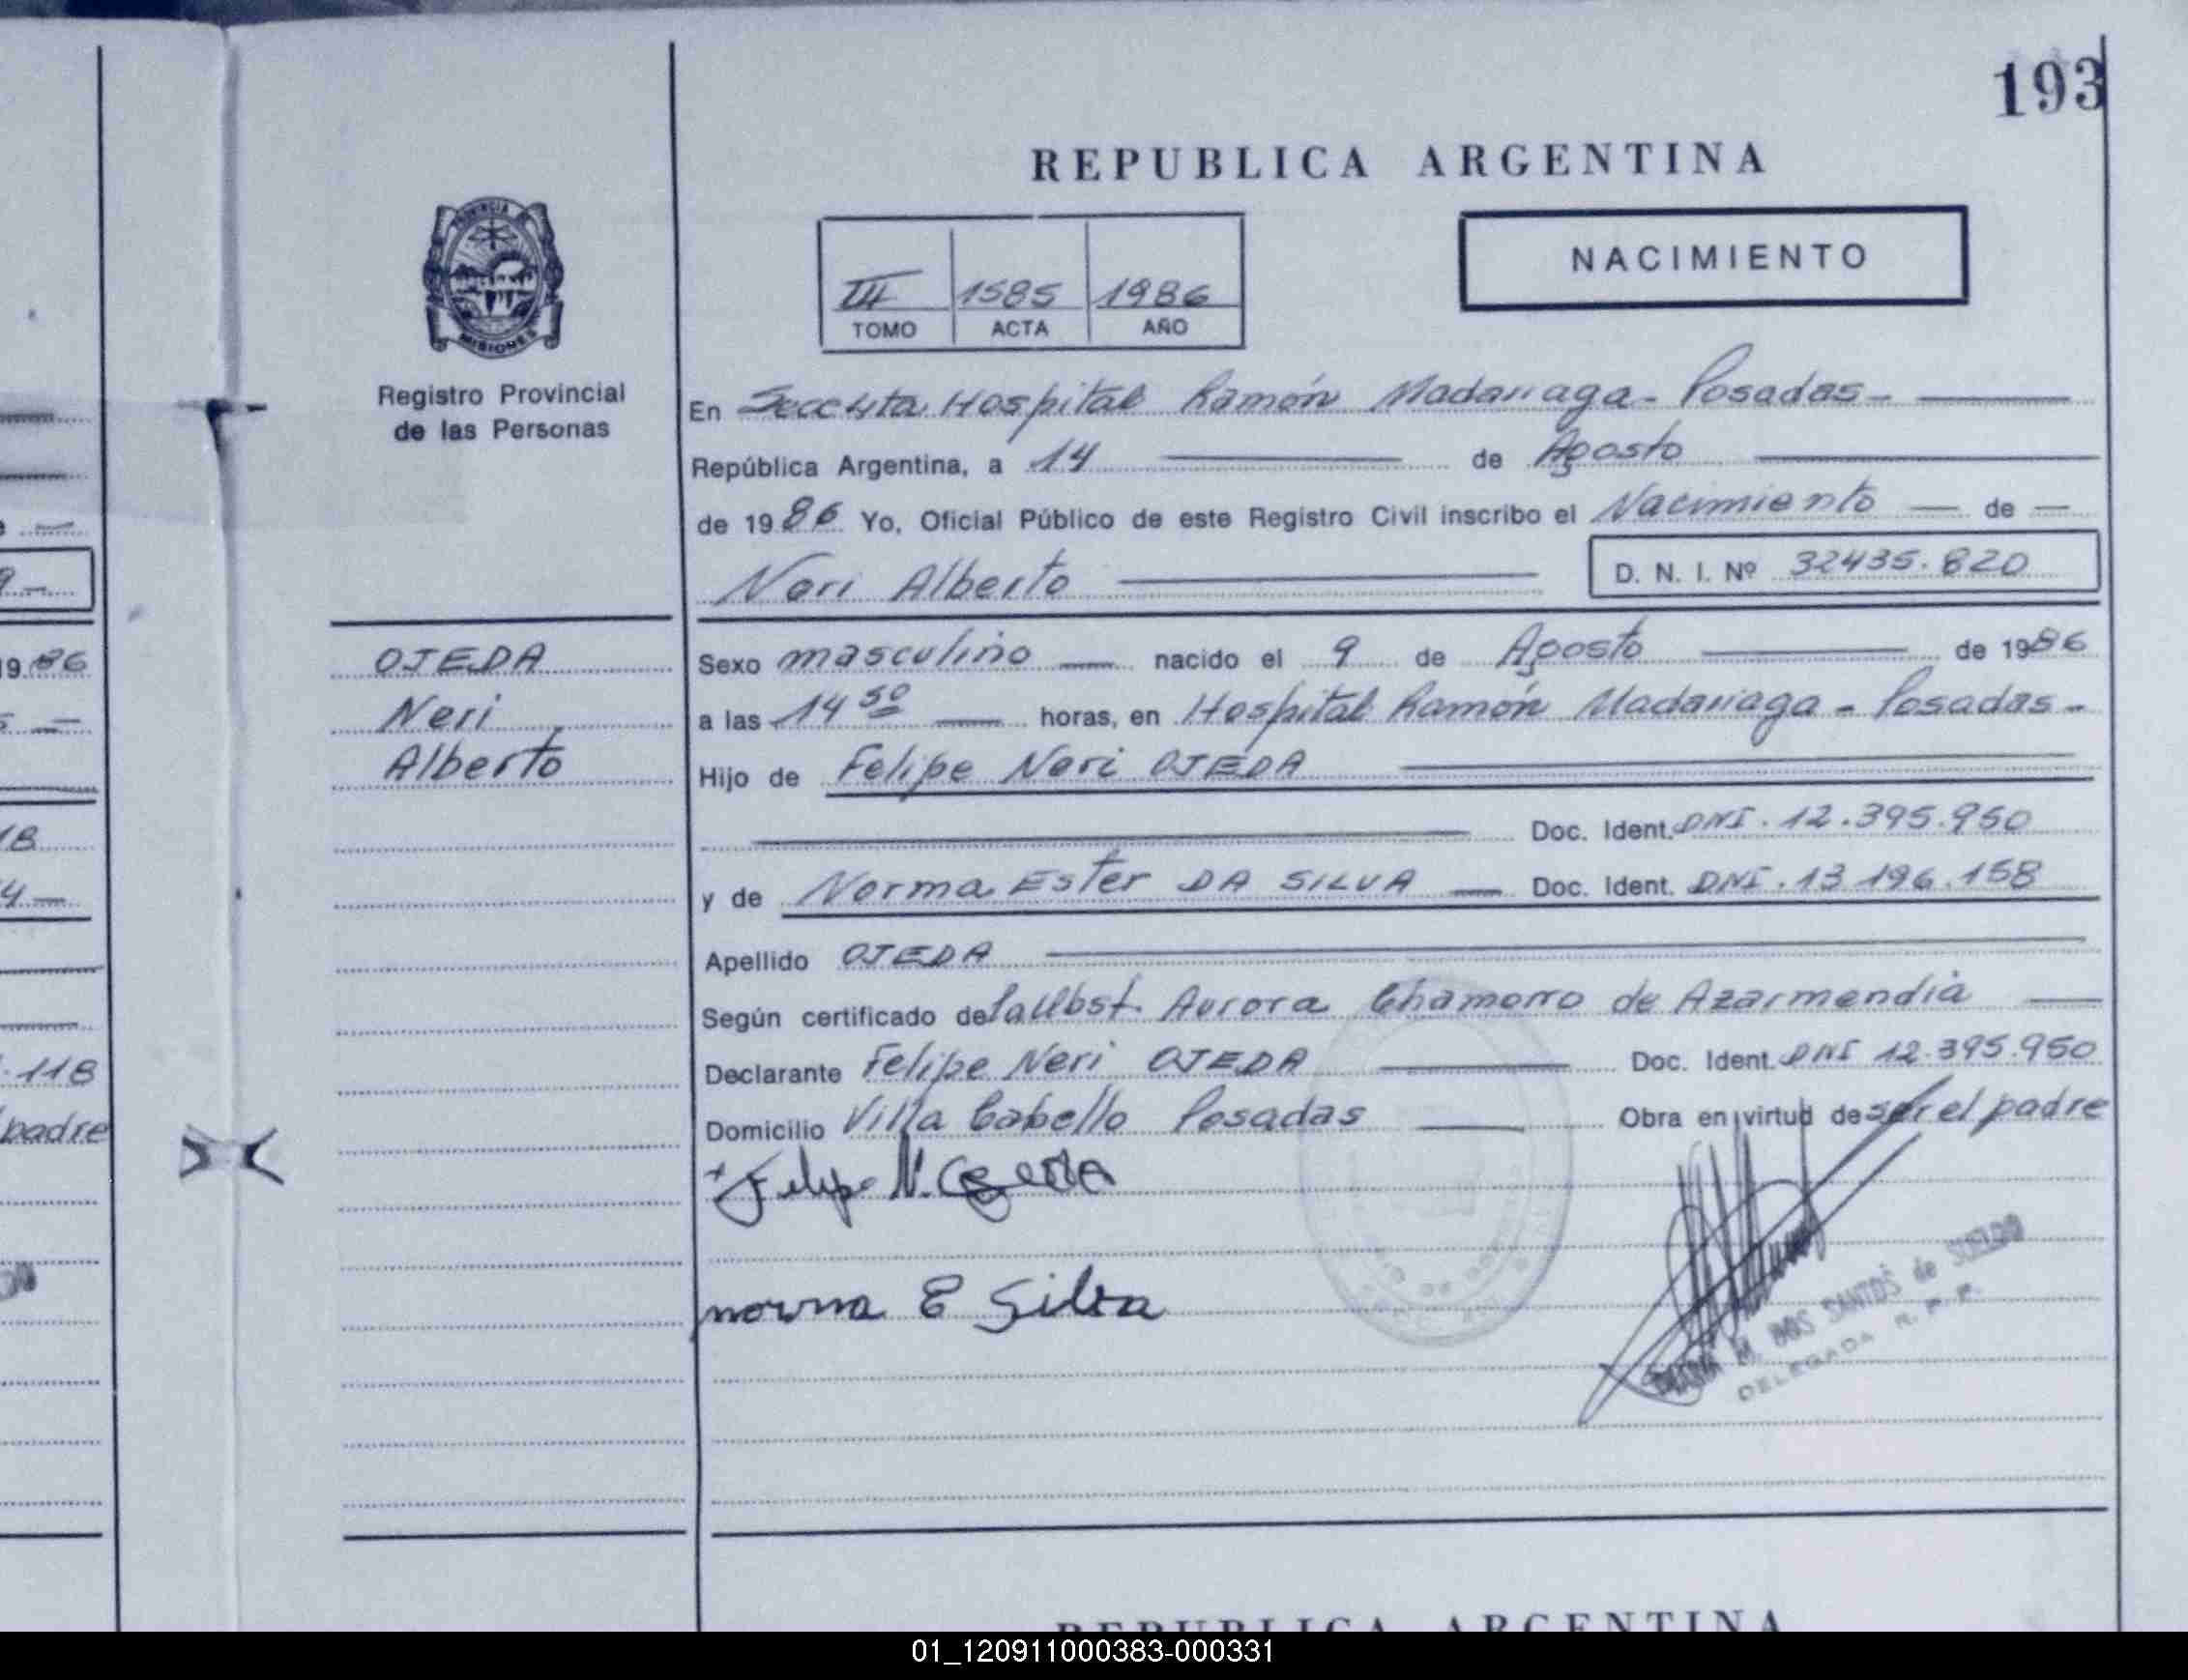 193
REPUBLICA ARGENTINA
PROVINCIA DE
MISIONES
Registro Provincial
de las Personas
III 1585 1986
TOMO ACTA AÑO
NACIMIENTO
En Secc 4ta Hospital Ramón Madariaga - Posadas -
República Argentina, a 14 de Agosto
de 1986 Yo, Oficial Público de este Registro Civil inscribo el Nacimiento de
Neri Alberto D. N. I. Nº 32435.820
OJEDA
Neri
Alberto
Sexo masculino nacido el 9 de Agosto de 1986
a las 14 50 horas, en Hospital Ramón Madariaga - Posadas -
Hijo de Felipe Neri OJEDA
Doc. Ident. DNI. 12.395.950
y de Norma Ester DA SILVA Doc. Ident. DNI. 13 196.158
Apellido OJEDA
Según certificado de la Obst. Aurora Chamorro de Azarmendia
Declarante Felipe Neri OJEDA Doc. Ident. DNI 12.395.950
Domicilio Villa Cabello Posadas Obra en virtud de ser el padre
Felipe N. Ojeda
norma E Silva
M. DOS SANTOS de
DELEGADA R. P. P.
1986
18
4
118
padre
REPUBLICA ARGENTINA
01_120911000383-000331